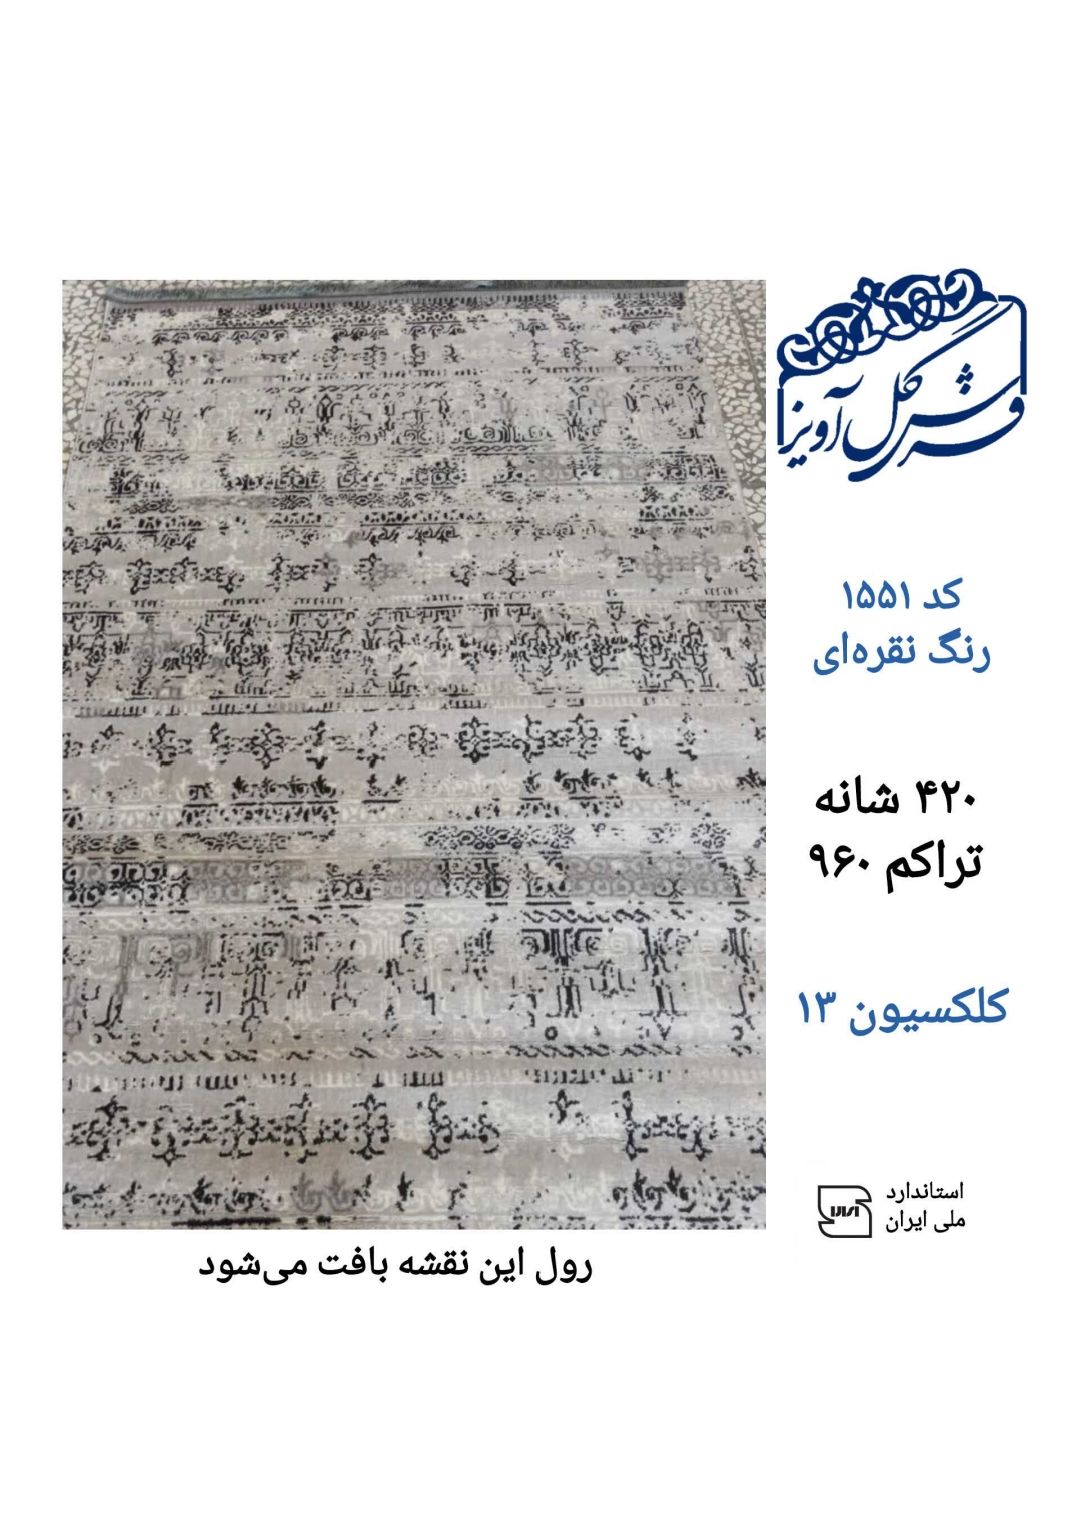 فرش گل آویز
کد ۱۵۵۱
رنگ نقره‌ای
۴۲۰ شانه
تراکم ۹۶۰
کلکسیون ۱۳
استاندارد
ملی ایران
رول این نقشه بافت می‌شود